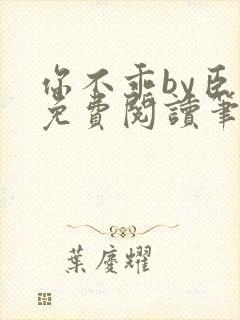 你不乖by臣
免費閱讀筆
葉慶耀